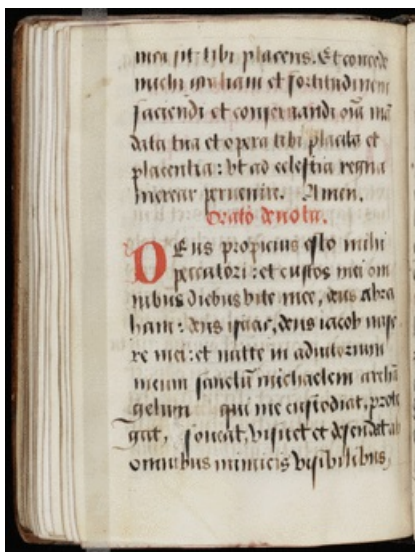 mea sit tibi placens. Et concede
michi graciam et fortitudinem
faciendi et conseruandi oĩa mã
data tua et opera tibi placita et
placentia : vt ad celestia regna
merear peruenire. Amen.
Oratio deuota.
DEus propicius esto mihi
peccatori : et custos mei om
nibus diebus vite mee, deus abra
ham : deus ysaac, deus iacob mise
re mei : et mitte in adiutorium
meum sanctũ michaelem archã
gelum qui me custodiat, prote
gat, foueat, visitet et defendat ab
omnibus inimicis visibilibus,